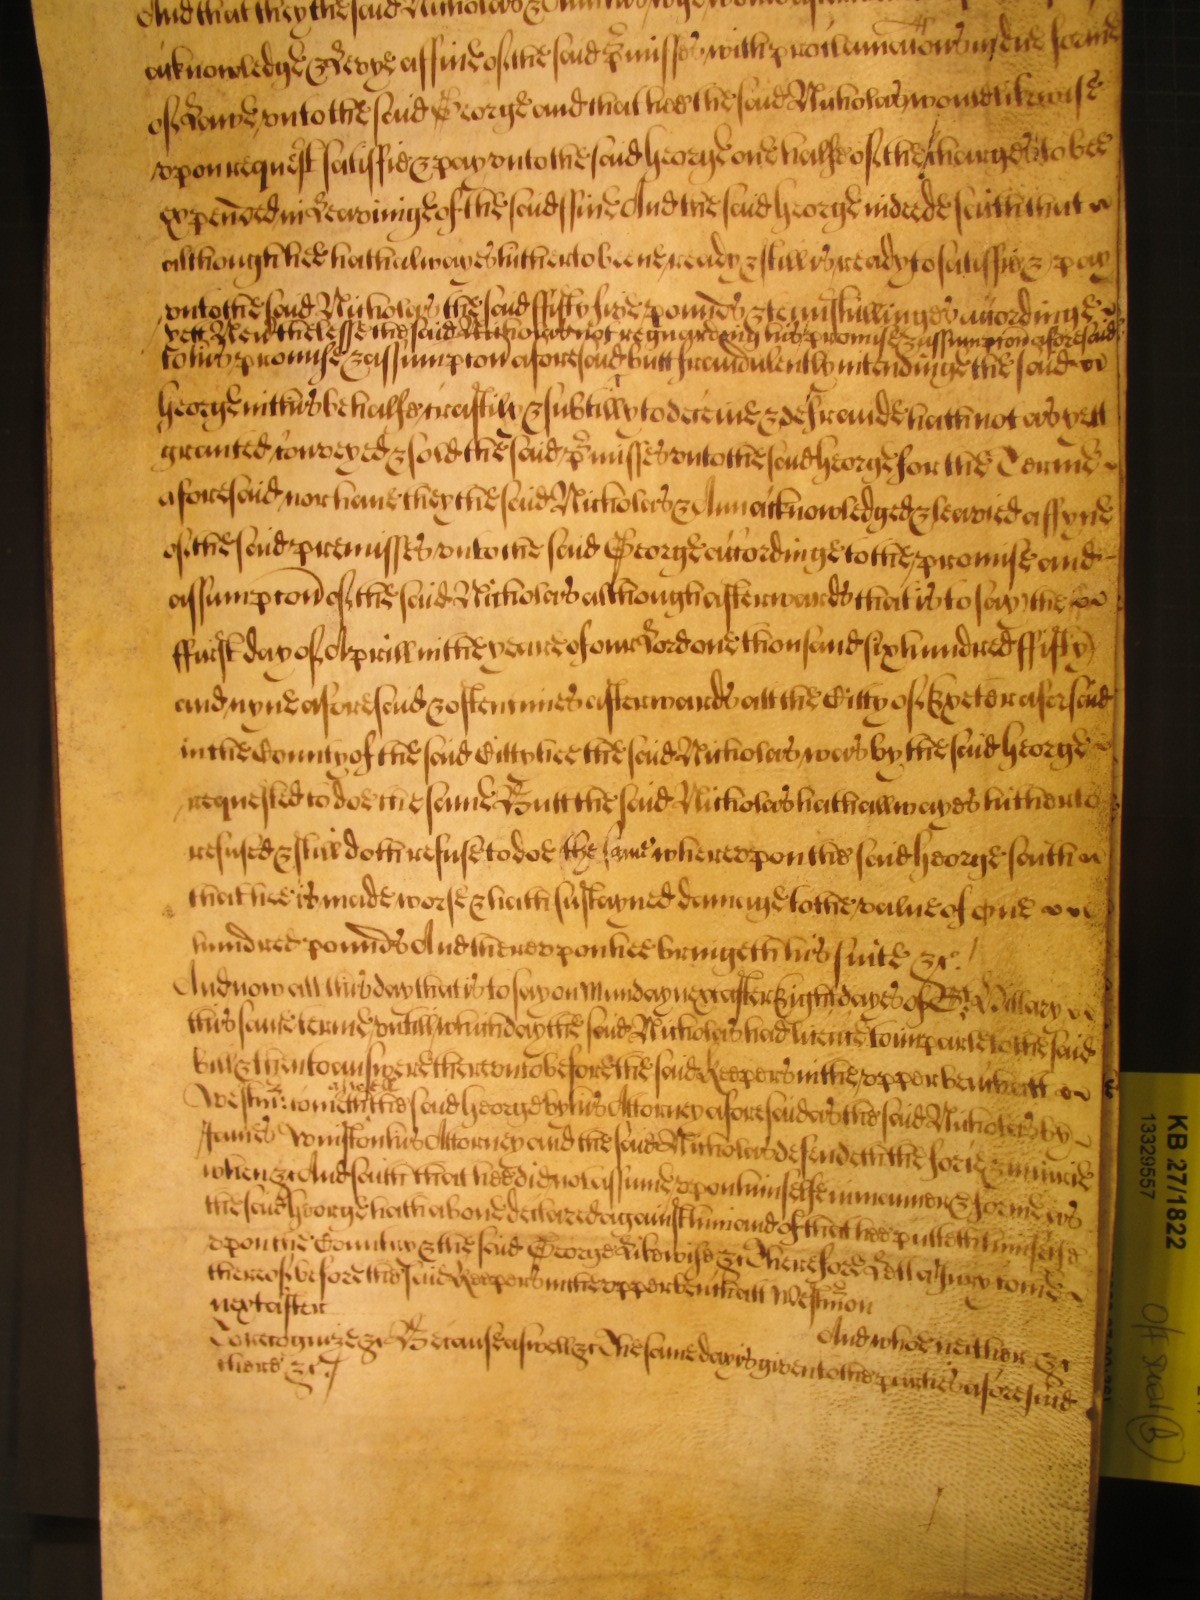 And that they the said Nicholas &
acknowledge & Levye a ffine of the said p'misses with proclamacons in due forme
of Lawe unto the said George and that hee the said Nicholas would likewise
upon request satisfie & pay unto the said George one halfe of the charges to bee
expended in Leavinge of the said ffine And the said George indeede saith that
although hee hath alwayes hitherto beene ready & still is ready to satisfie & pay
unto the said Nicholas the said ffifty five pounds & tenn shillinges accordinge
yett Neverthelesse the said Nicholas not regardeing his promise & assumpcon aforesaid
to his promise & assumpcon aforesaid butt fraudulently intendinge the said
George in this behalfe craftily & subtilly to deceive & defraude hath not as yett
granted conveyed & sold the said p'misses unto the said George for the Terme
aforesaid nor have they the said Nicholas & Ann acknowledged & leavied a ffyne
of the said premisses unto the said George accordinge to the promise and
assumpcon of the said Nicholas although afterwards that is to say the
ffirst day of Aprill in the yeare of our Lord one thousand six hundred ffifty
and nyne aforesaid & oftentimes afterwards att the Citty of Exeter aforesaid
in the County of the said Citty hee the said Nicholas was by the said George
requested to doe the same Butt the said Nicholas hath allwayes hitherto
refused & still doth refuse to doe the same whereupon the said George saith
that hee is made worse & hath sustayned damage to the value of One
hundred pounds And thereupon hee bringeth his suite &c.
And now att this day that is to say on Munday next after Eight dayes of St Hillary
this same terme untill which day the said Nicholas had licence to imparle to the said
bill & then to answere thereunto before the said Keepers in the upper bench att
Westm'r cometh aswell the said George by his Attorney aforesaid as the said Nicholas by
James Winston his Attorney and the said Nicholas defendeth the force & iniurie
when &c And saith that hee did not assume upon himselfe in manner & forme as
the said George hath above declared against him and of that hee putteth himselfe
upon the Country & the said George Likewise &c Therefore Lett a Jury come
thereof before the said Keepers in the upper bench att Westm' on
next after And who neither &c
To recognize &c Because aswell &c The same day is given to the parties aforesaid
there &c.
KB 27/1822
13329557